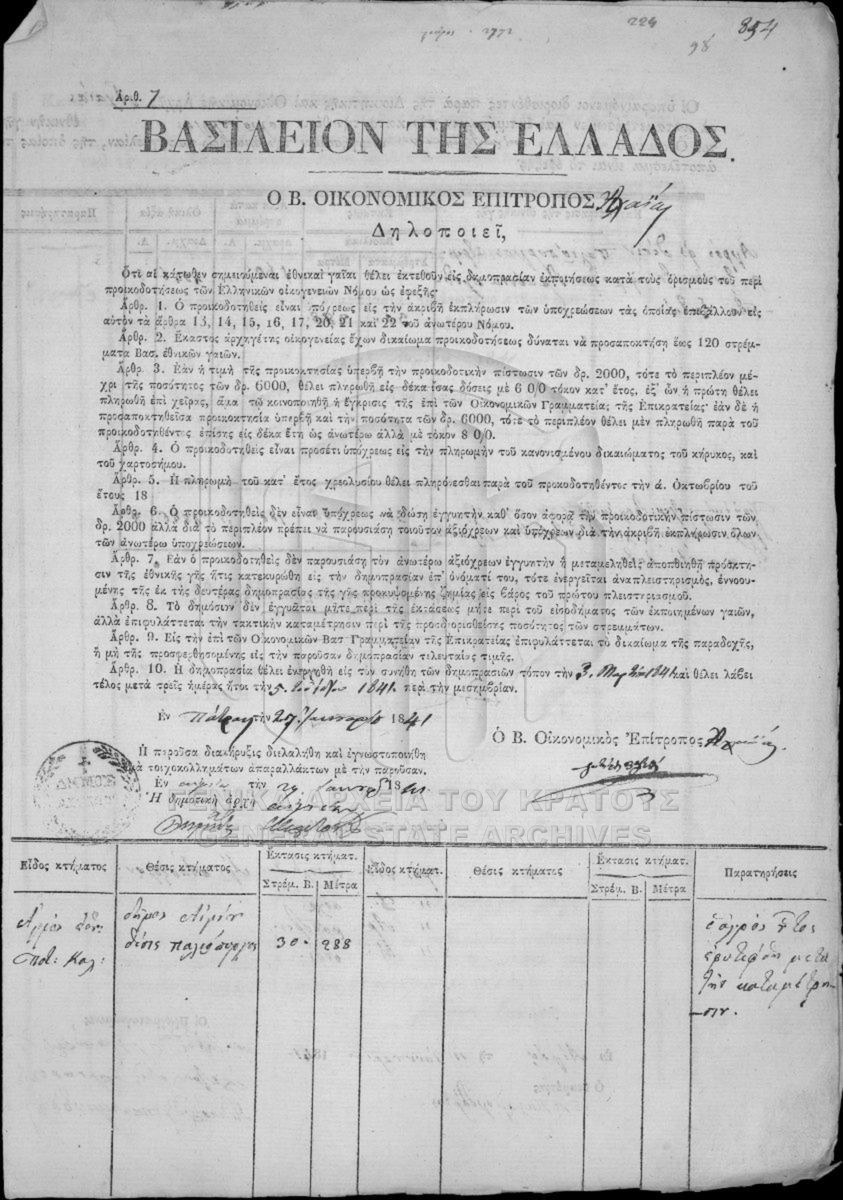 224
98 854
Ἀριθ. 7
ΒΑΣΙΛΕΙΟΝ ΤΗΣ ΕΛΛΑΔΟΣ.
Ο Β. ΟΙΚΟΝΟΜΙΚΟΣ ΕΠΙΤΡΟΠΟΣ Ἀχαΐας
Δηλοποιεῖ,
Ὅτι αἱ κάτωθεν σημειούμεναι ἐθνικαὶ γαῖαι θέλει ἐκτεθοῦν εἰς δημοπρασίαν ἐκποιήσεως κατὰ τοὺς ὁρισμοὺς τοῦ περὶ
προικοδοτήσεως τῶν Ἑλληνικῶν οἰκογενειῶν Νόμου ὡς ἐφεξῆς·
Ἄρθρ. 1. Ὁ προικοδοτηθεὶς εἶναι ὑπόχρεως εἰς τὴν ἀκριβῆ ἐκπλήρωσιν τῶν ὑποχρεώσεων τὰς ὁποίας ἐπιβάλλουν εἰς
αὐτὸν τὰ ἄρθρα 13, 14, 15, 16, 17, 20, 21 καὶ 22 τοῦ ἀνωτέρου Νόμου.
Ἄρθρ. 2. Ἕκαστος ἀρχηγέτης οἰκογενείας ἔχων δικαίωμα προικοδοτήσεως δύναται νὰ προσαποκτήση ἕως 120 στρέμ-
ματα Βασ. ἐθνικῶν γαιῶν.
Ἄρθρ. 3. Ἐὰν ἡ τιμὴ τῆς προικοκτησίας ὑπερβῇ τὴν προικοδοτικὴν πίστωσιν τῶν δρ. 2000, τότε τὸ περιπλέον μέ-
χρι τῆς ποσότητος τῶν δρ. 6000, θέλει πληρωθῆ εἰς δέκα ἴσας δόσεις μὲ 6 0/0 τόκον κατ' ἔτος, ἐξ' ὧν ἡ πρώτη θέλει
πληρωθῆ ἐπὶ χεῖρας, ἅμα τῷ κοινοποιηθῇ ἡ ἔγκρισις τῆς ἐπὶ τῶν Οἰκονομικῶν Γραμματείας τῆς Ἐπικρατείας· ἐὰν δὲ ἡ
προσαποκτηθεῖσα προικοκτησία ὑπερβῇ καὶ τὴν ποσότητα τῶν δρ. 6000, τότε τὸ περιπλέον θέλει μὲν πληρωθῆ παρὰ τοῦ
προικοδοτηθέντος ἐπίσης εἰς δέκα ἔτη ὡς ἀνωτέρω ἀλλὰ μὲ τόκον 8 0/0.
Ἄρθρ. 4. Ὁ προικοδοτηθεὶς εἶναι προσέτι ὑπόχρεως εἰς τὴν πληρωμὴν τοῦ κανονισμένου δικαιώματος τοῦ κήρυκος, καὶ
τοῦ χαρτοσήμου.
Ἄρθρ. 5. Ἡ πληρωμὴ τοῦ κατ' ἔτος χρεολυσίου θέλει πληρόνεσθαι παρὰ τοῦ προκοδοτηθέντος τὴν ά. Ὀκτωβρίου τοῦ
ἔτους 18
Ἄρθρ. 6. Ὁ προικοδοτηθεὶς δὲν εἶναι ὑπόχρεως νὰ δώση ἐγγυητὴν καθ' ὅσον ἀφορᾷ τὴν προικοδοτικὴν πίστωσιν τῶν
δρ. 2000 ἀλλὰ διὰ τὸ περιπλέον πρέπει νὰ παρουσιάση τοιοῦτον ἀξιόχρεων καὶ ὑπόχρεων διὰ τὴν ἀκριβῆ ἐκπλήρωσιν ὅλων
τῶν ἀνωτέρω ὑποχρεώσεων.
Ἄρθρ. 7. Ἐὰν ὁ προικοδοτηθεὶς δὲν παρουσιάση τὸν ἀνωτέρω ἀξιόχρεων ἐγγυητὴν ἢ μεταμεληθεὶς ἀποποιηθῇ πρόσκτη-
σιν τῆς ἐθνικῆς γῆς ἥτις κατεκυρώθη εἰς τὴν δημοπρασίαν ἐπ' ὀνόματί του, τότε ἐνεργεῖται ἀναπλειστηρισμὸς, ἐννοου-
μένης τῆς ἐκ τῆς δευτέρας δημοπρασίας τῆς γῆς προκυψομένης ζημίας εἰς βάρος τοῦ πρώτου πλειστηριασμοῦ.
Ἄρθρ. 8. Τὸ δημόσιον δὲν ἐγγυᾶται μήτε περὶ τῆς ἐκτάσεως μήτε περὶ τοῦ εἰσοδήματος τῶν ἐκποιημένων γαιῶν,
ἀλλὰ ἐπιφυλάττεται τὴν τακτικὴν καταμέτρησιν περὶ τῆς προσδιορισθείσης ποσότητος τῶν στρεμμάτων.
Ἄρθρ. 9. Εἰς τὴν ἐπὶ τῶν Οἰκονομικῶν Βασ Γραμματείαν τῆς Ἐπικρατείας ἐπιφυλάττεται τὸ δικαίωμα τῆς παραδοχῆς,
ἢ μὴ τῆς προσφερθησομένης εἰς τὴν παροῦσαν δημοπρασίαν τελευταίας τιμῆς.
Ἄρθρ. 10. Ἡ δημοπρασία θέλει ἐνεργηθῆ εἰς τὸν συνήθη τῶν δημοπρασιῶν τόπον τὴν 3. Μαρτίου 1841 καὶ θέλει λάβει
τέλος μετὰ τρεῖς ἡμέρας ἤτοι τὴν 5. ἰδίου 1841. περὶ τὴν μεσημβρίαν.
Ἐν Πάτραις τὴν 27 Ἰανουαρίου 1841
Ὁ Β. Οἰκονομικὸς Ἐπίτροπος Ἀχαΐας.
Ἡ παροῦσα διακήρυξις διελαλήθη καὶ ἐγνωστοποιήθη
διὰ τοιχοκολλημάτων ἀπαραλλάκτων μὲ τὴν παροῦσαν.
Ἐν τὴν 29 Ἰανουαρ 1841
Ἡ δημοτικὴ ἀρχὴ
ΓΕΝΙΚΑ ΑΡΧΕΙΑ ΤΟΥ ΚΡΑΤΟΥΣ
GENERAL STATE ARCHIVES
Εἶδος κτήματος Θέσις κτήματος Ἔκτασις κτήματ. Εἶδος κτήματ. Θέσις κτήματος Ἔκτασις κτήματ. Παρατηρήσεις
Στρέμ. Β. Μέτρα Στρέμ. Β. Μέτρα
Ἀγρὸς δῆμος
ποτ: καλ: θέσις 30 288
μετὰ
τὴν καταμέτρη-
σιν.